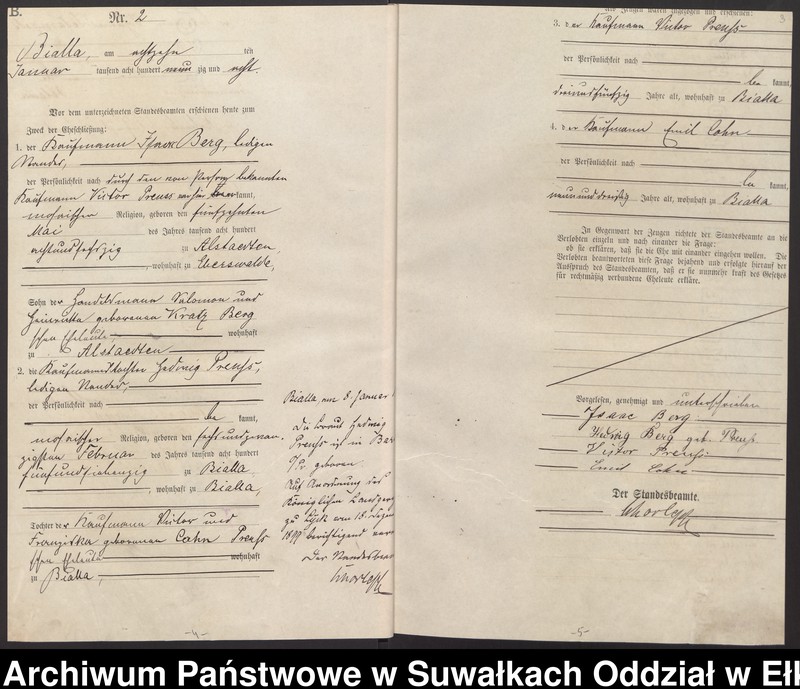 B.
Nr. 2
Bialla, am achtzehn ten
Januar tausend acht hundert neun zig und acht.
Vor dem unterzeichneten Standesbeamten erschienen heute zum
Zweck der Eheschließung:
1. der Kaufmann Isaac Berg, ledigen
Standes,
der Persönlichkeit nach durch den von Person bekannten
Kaufmann Victor Preuss kannt,
mosaischen Religion, geboren den fünfzehnten
Mai des Jahres tausend acht hundert
achtundsechszig zu Alstaedten
, wohnhaft zu Eberswalde,
Sohn der Handelsmann Salomon und
Heinriette geborenen Kratz Berg
schen Eheleute, wohnhaft
zu Alstaedten
2. die Kaufmannstochter Hedwig Preuß,
ledigen Standes,
der Persönlichkeit nach
be kannt,
mosaischer Religion, geboren den sechsundzwan-
zigsten Februar des Jahres tausend acht hundert
fünfundsiebenzig zu Bialla
, wohnhaft zu Bialla,
Tochter der Kaufmann Victor und
Franziska geborenen Cohn Preuß
schen Eheleute wohnhaft
zu Bialla,
Bialla, am 8. Januar
Die Braut Hedwig
Preuß ist in
geboren
Auf Anordnung des
Königlichen
zu Lyck vom 18.
berichtigend
Der Standesbea
-4-
Als Zeugen waren zugezogen und erschienen:
3
3. der Kaufmann Victor Preuß
der Persönlichkeit nach
be kannt,
dreiundfünfzig Jahre alt, wohnhaft zu Bialla
4. der Kaufmann Emil Cohn
der Persönlichkeit nach
be kannt,
neununddreißig Jahre alt, wohnhaft zu Bialla
In Gegenwart der Zeugen richtete der Standesbeamte an die
Verlobten einzeln und nach einander die Frage:
ob sie erklären, daß sie die Ehe mit einander eingehen wollen. Die
Verlobten beantworteten diese Frage bejahend und erfolgte hierauf der
Ausspruch des Standesbeamten, daß er sie nunmehr kraft des Gesetzes
für rechtmäßig verbundene Eheleute erkläre.
Vorgelesen, genehmigt und unterschrieben
Isaac Berg
Hedwig Berg geb. Preuß
Victor Preuß
Emil Cohn
Der Standesbeamte.
-5-
Archiwum Państwowe w Suwałkach Oddział w Ełk